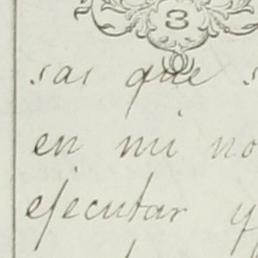 3
sas que
en mi no
ejecutar y